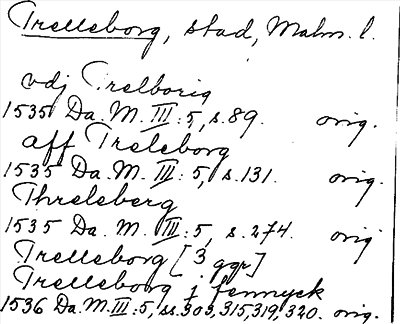 Trelleborg, stad, Malm. l.
vdj Trelborig
1535 Da. M. III:5, s.89. orig.
aff Treleborg
1535 Da. M. III:5, s.131. orig.
Threleberg
1535 Da. M. III:5, s.274. orig
Trelleborg [3 ggr]
Trelleborg j fennyck
1536 Da. M. III:5, ss.303,315,319,320. orig.